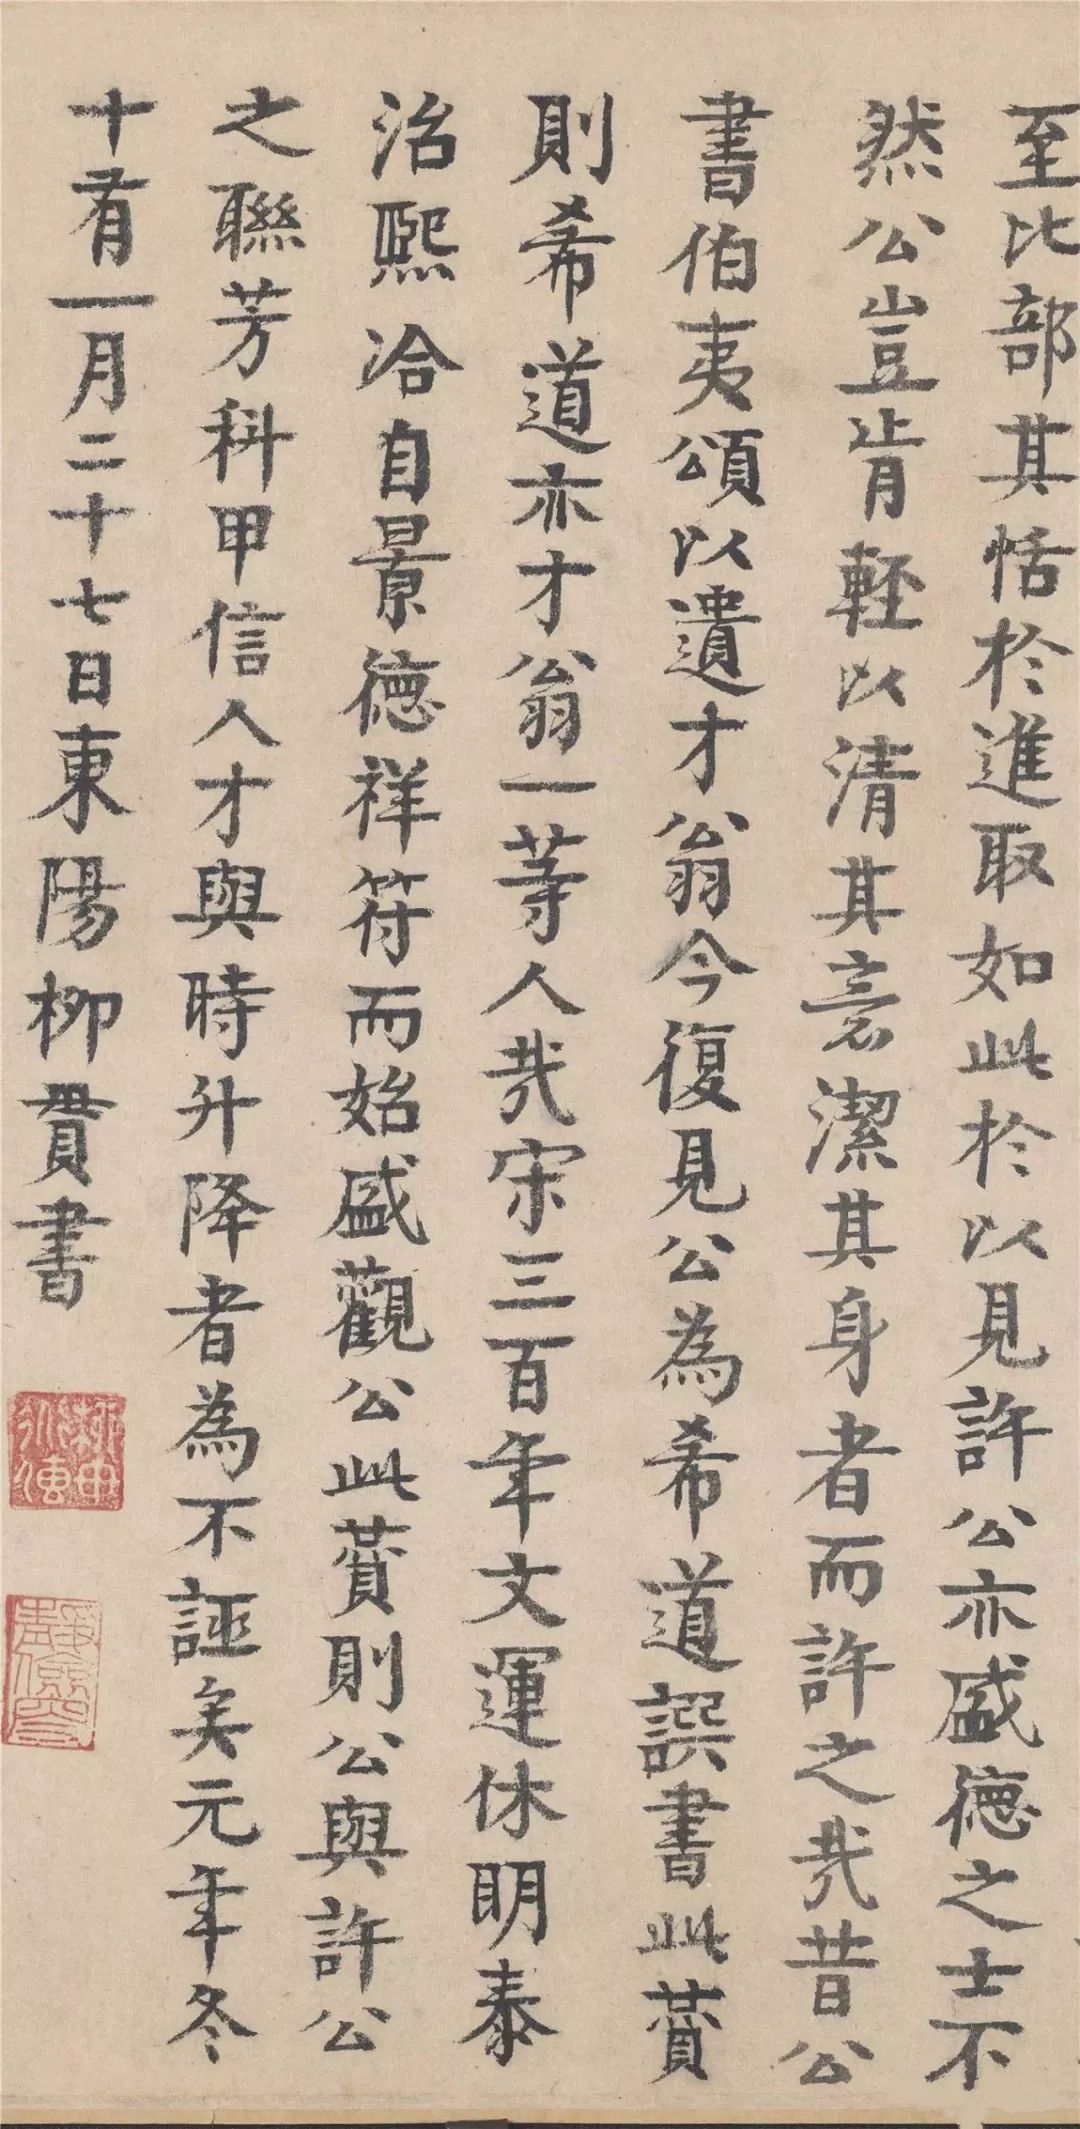 至比部其恬於進取如此於以見許公亦盛德之士不
然公豈肯輕以清其意潔其身者而許之哉昔公
書伯夷頌以遺才翁今復見公為希道譔書此贊
則希道亦才翁一等人哉宋三百年文運休明泰
治熙洽自景德祥符而始盛觀公此贊則公與許公
之聯芳科甲信人才與時升降者為不誣矣元年冬
十有一月二十七日東陽柳貫書